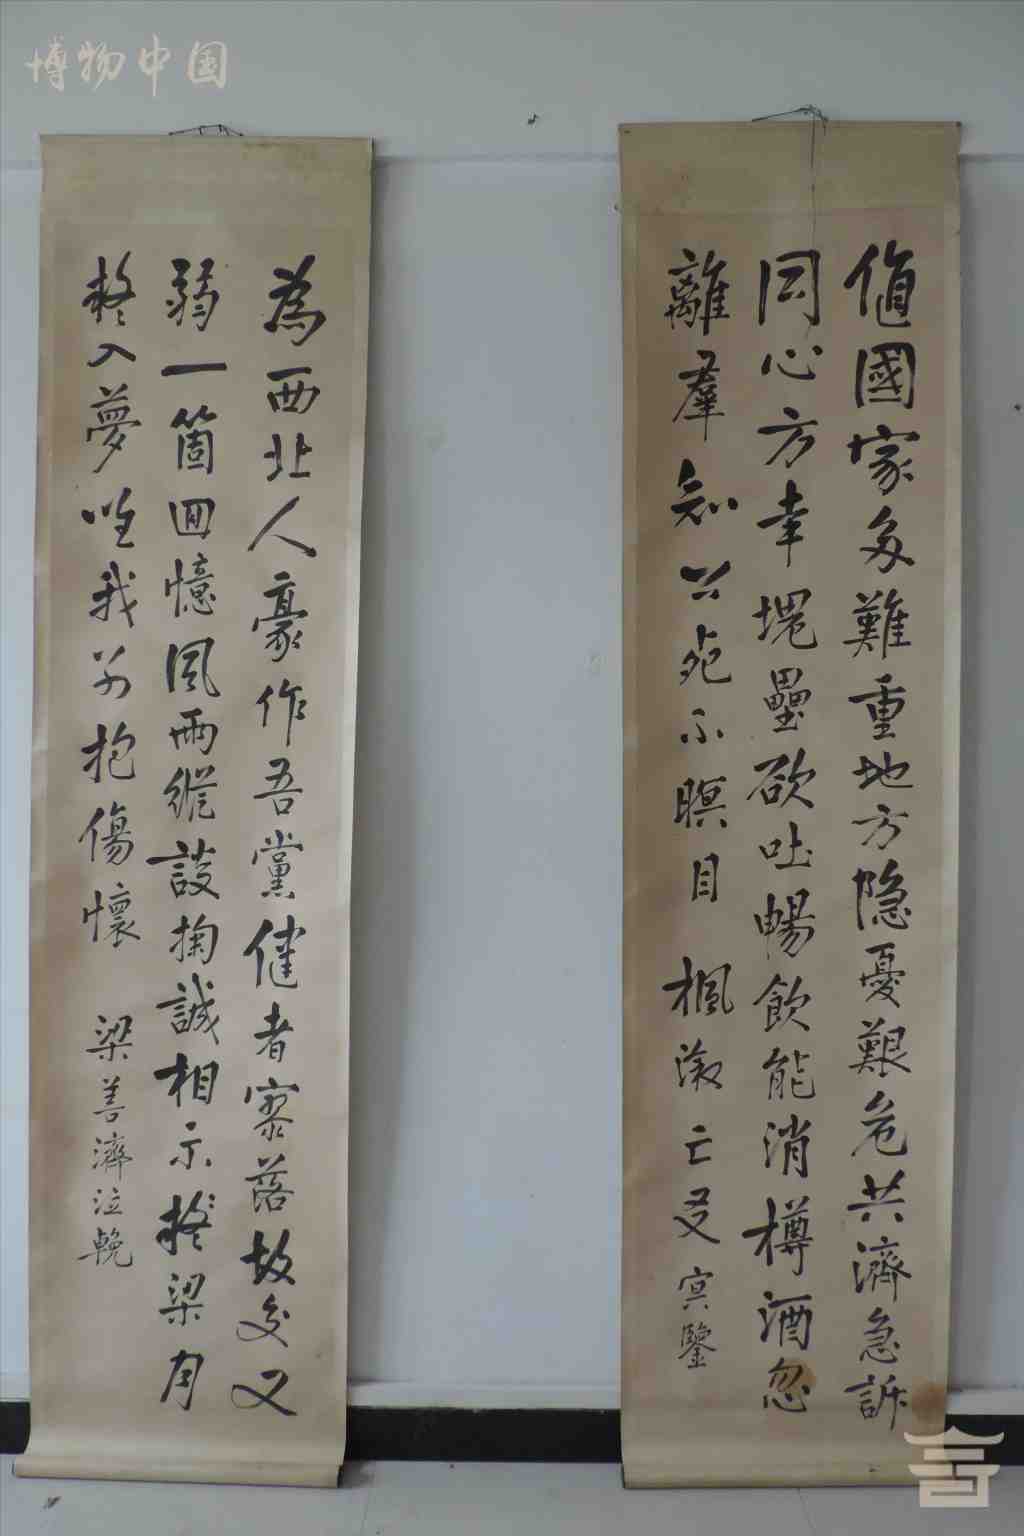 博物中国
值國家多難重地方隐憂艱危共濟急訴
同心方幸塊壘欲吐暢飲能消樽酒忽
離羣知公死不瞑目 楓亡友 冥鑒
為西北人豪作吾黨健者寥落故交又
弱一箇回憶風雨縱談掬誠相示梁月
入夢唯我抱傷懷 梁善濟泣輓